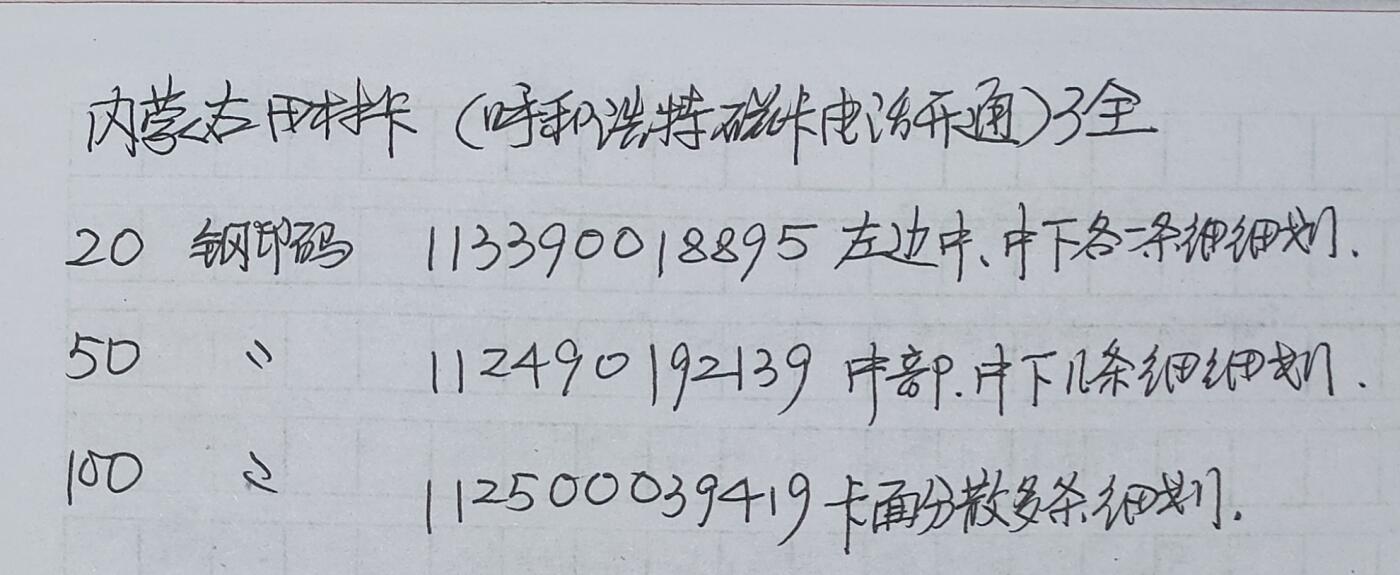 内蒙古田村卡(呼和浩特磁卡电话开通)3全
20 钢印码 113390018895 左边中、中下各一条细细划.
50 〃 112490192139 中部.中下几条细细划.
100 〃 112500039419 卡面分散多条细划.